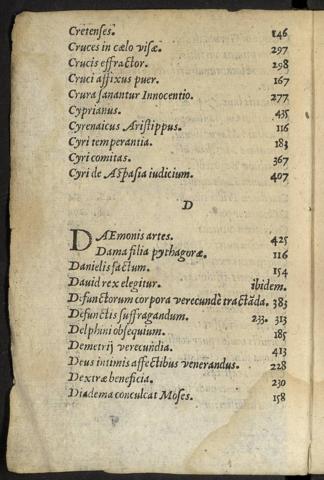 Cretenses. 146
Cruces in cælo visæ. 297
Crucis effractor. 298
Cruci affixus puer. 167
Crura sanantur Innocentio. 277
Cyprianus. 435
Cyrenaicus Aristippus. 116
Cyri temperantia. 183
Cyri comitas. 367
Cyri de Aspasia iudicium. 407
D
DAEmonis artes. 425
Dama filia pythagoræ. 116
Danielis factum. 154
Dauid rex elegitur. ibidem.
Defunctorum corpora verecundè tractãda. 383
Defunctis suffragandum. 233. 313
Delphini obsequium. 185
Demetrij verecundia. 413
Deus intimis affectibus venerandus. 228
Dextræ beneficia. 230
Diadema conculcat Moses. 158